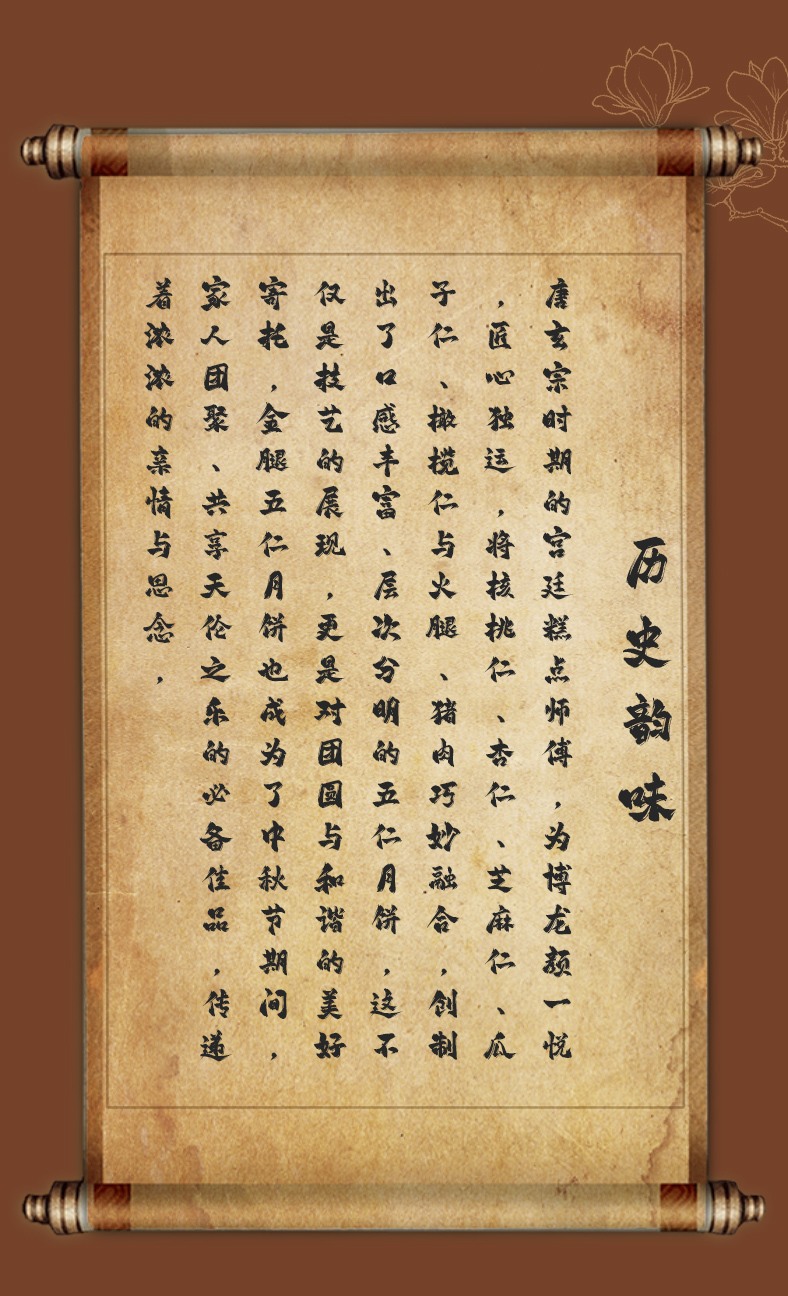 历史韵味
唐玄宗时期的宫廷糕点师傅，为博龙颜一悦
，匠心独运，将核桃仁、杏仁、芝麻仁、瓜
子仁、橄榄仁与火腿、猪肉巧妙融合，创制
出了口感丰富、层次分明的五仁月饼，这不
仅是技艺的展现，更是对团圆与和谐的美好
寄托，金腿五仁月饼也成为了中秋节期间，
家人团聚、共享天伦之乐的必备佳品，传递
着浓浓的亲情与思念，